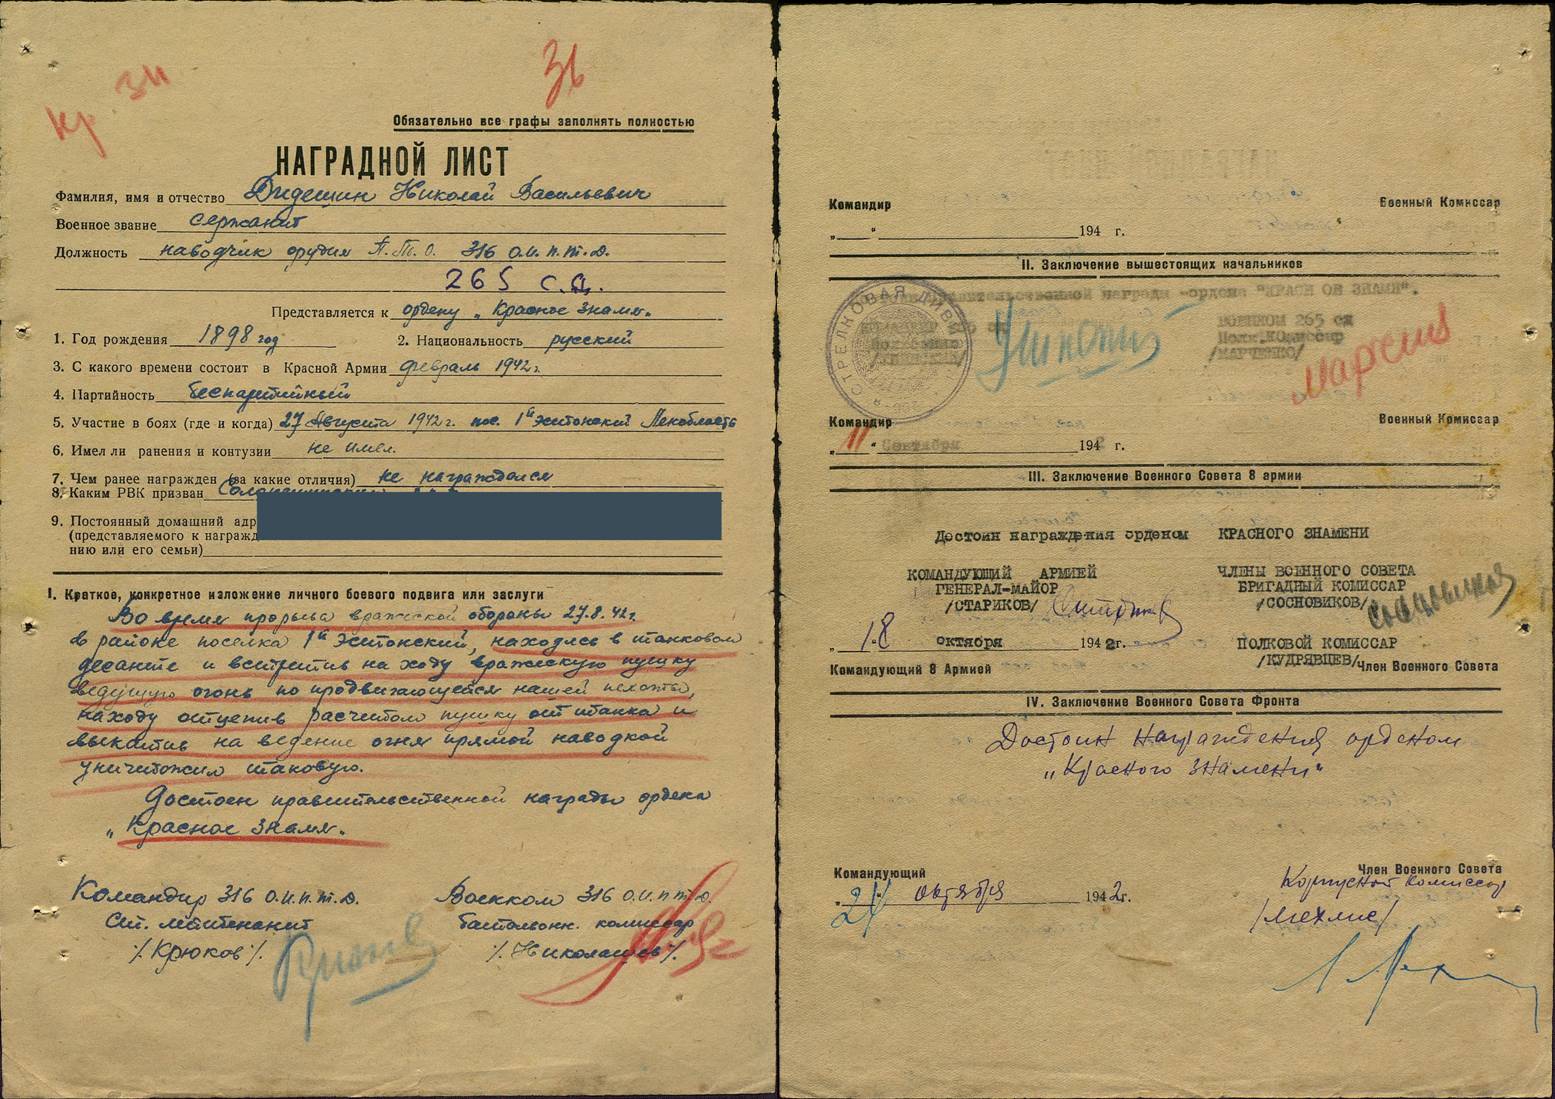 Кр. Зн
36
Обязательно все графы заполнять полностью
НАГРАДНОЙ ЛИСТ
Фамилия, имя и отчество Дидешин Николай Васильевич
Военное звание сержант
Должность наводчик орудия П.Т.О. 316 о.и.п.т.д.
265 с.д.
Представляется к ордену „Красное Знамя"
1. Год рождения 1898 год 2. Национальность русский
3. С какого времени состоит в Красной Армии февраль 1942г.
4. Партийность беспартийный
5. Участие в боях (где и когда) 27 Августа 1942г. пос. 1й Эстонский Ленобласть
6. Имел ли ранения и контузии не имел.
7. Чем ранее награжден (за какие отличия) не награждался
8. Каким РВК призван
9. Постоянный домашний адр
(представляемого к награжд
нию или его семьи)
I. Краткое, конкретное изложение личного боевого подвига или заслуги
Во время прорыва вражеской обороны 27.8.42г.
в районе поселка 1й Эстонский, находясь в танковом
десанте и встретив на ходу вражескую пушку
ведущую огонь по продвигающейся нашей пехоты,
находу отцепив расчетом пушку от танка и
выкатив на ведение огня прямой наводкой
уничтожил таковую.
Достоен правительственной награды ордена
„Красное Знамя".
Командир 316 о.и.п.т.д. Военком 316 о.и.п.т.д.
Ст. лейтенант батальонн. комиссар
/Крюков/. /Николашев/.
Командир Военный Комиссар
„ " 194 г.
II. Заключение вышестоящих начальников
правительственной награды -ордена "КРАСНОЕ ЗНАМЯ".
СТРЕЛКОВАЯ ДИВИ
КОМАНДИР сд ВОЕНКОМ 265 сд
Полковник Полк.Комиссар
/УШИНСКИЙ/ /МАРЧЕНКО/
Командир Военный Комиссар
„11" Сентября 1942 г.
III. Заключение Военного Совета 8 армии
Достоин награждения орденом КРАСНОГО ЗНАМЕНИ
КОМАНДУЮЩИЙ АРМИЕЙ ЧЛЕНЫ ВОЕННОГО СОВЕТА
ГЕНЕРАЛ-МАЙОР БРИГАДНЫЙ КОМИССАР
/СТАРИКОВ/ /СОСНОВИКОВ/ Сосновиков
„18 октября 1942г. ПОЛКОВОЙ КОМИССАР
/КУДРЯВЦЕВ/
Командующий 8 Армией Член Военного Совета
IV. Заключение Военного Совета Фронта
Достоин награждения орденом
„Красного знамени"
Командующий Член Военного Совета
„24 октября 1942г. Корпусной комиссар
/Мехлис/